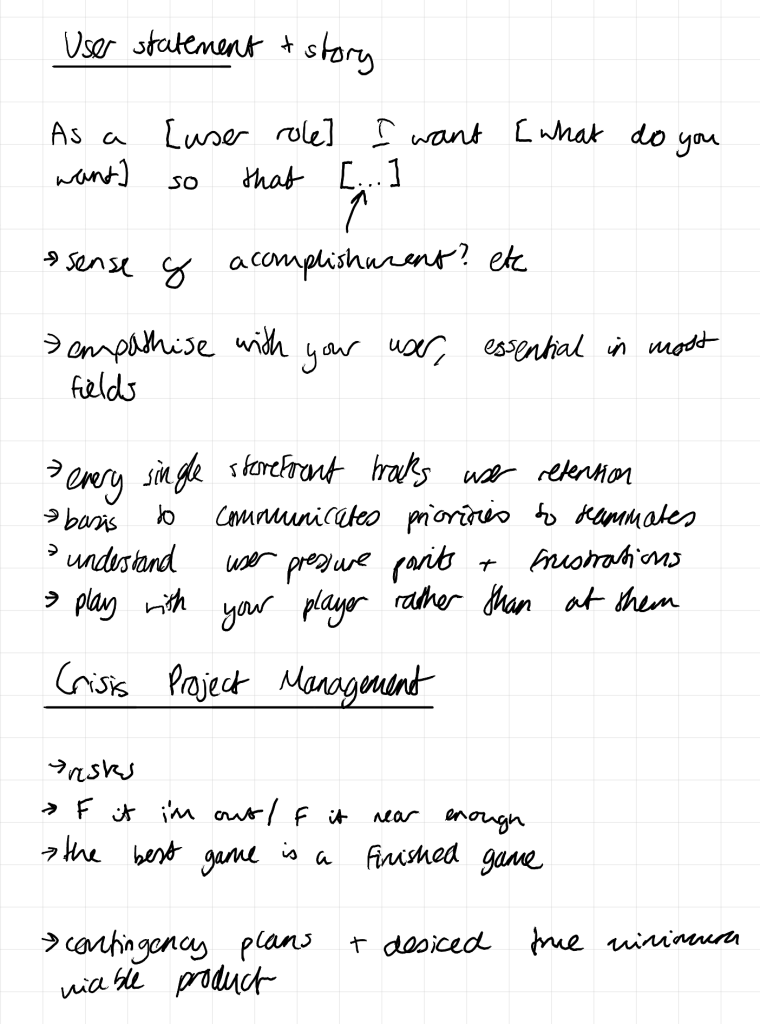 User statement + story
As a [user role] I want [what do you
want] so that [...]
→ sense of acomplishment? etc
→ empathise with your user, essential in most
fields
→ every single storefront tracks user retention
→ basis to communicates priorities to teammates
→ understand user pressure points + frustrations
→ play with your player rather than at them
Crisis Project Management
→ risks
→ F it i'm out / F it near enough
→ the best game is a finished game
→ contingency plans + desiced true minimum
viable product